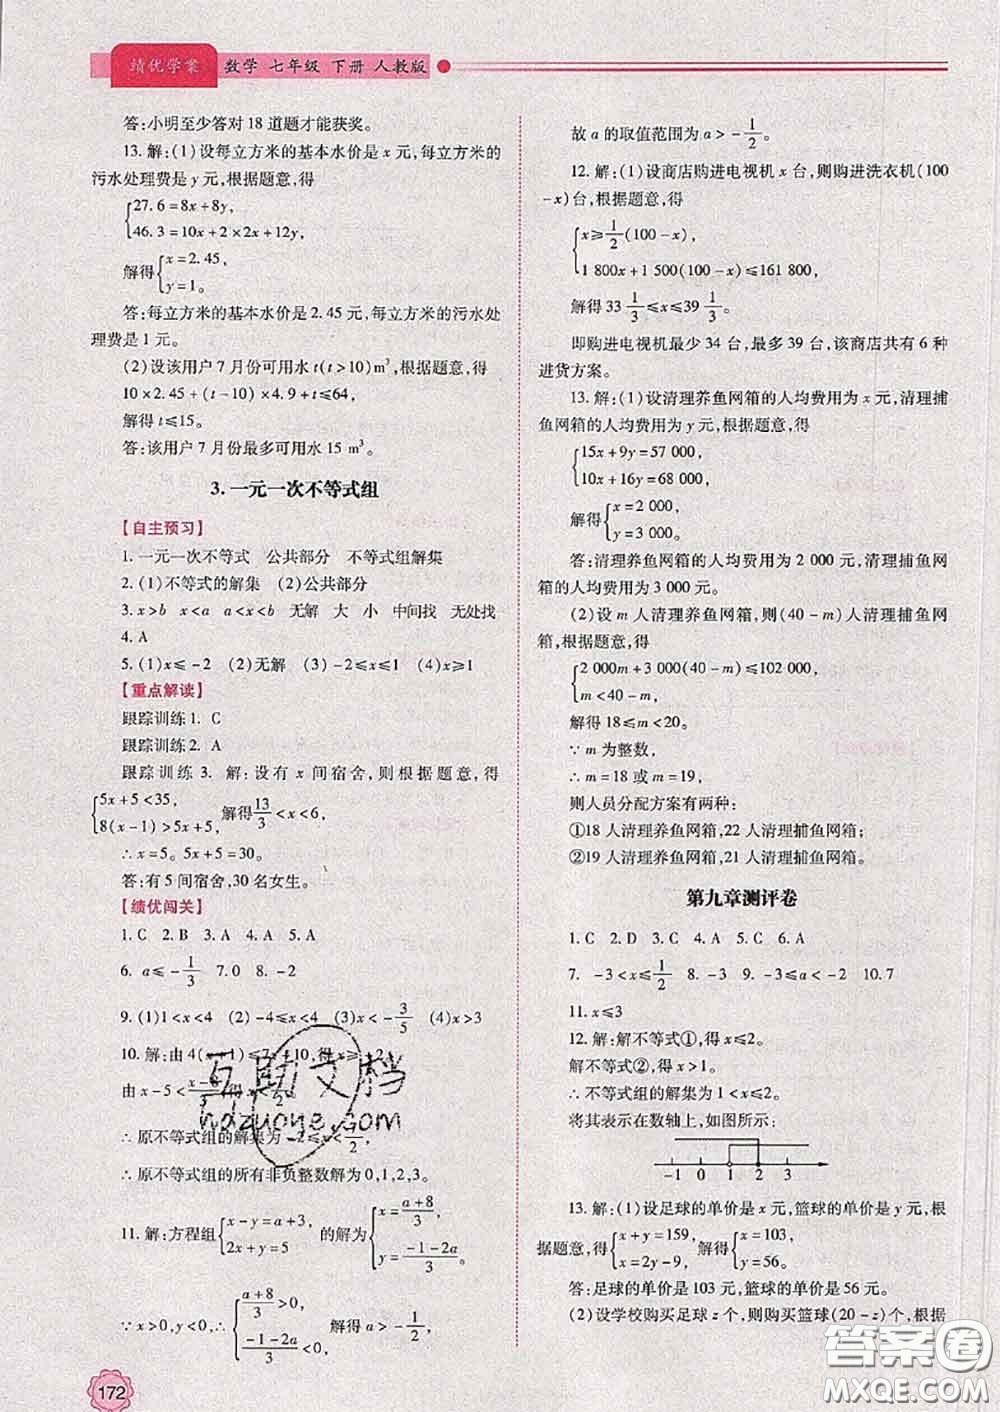 绩优学案 数学 七年级 下册 人教版
答:小明至少答对 18 道题才能获奖。
13. 解:(1)设每立方米的基本水价是 x 元,每立方米的
污水处理费是 y 元,根据题意,得
{27.6=8x+8y,
46.3=10x+2×2x+12y,
解得{x=2.45,
y=1。
答:每立方米的基本水价是 2.45 元,每立方米的污水处
理费是 1 元。
(2)设该用户 7 月份可用水 t(t>10)m³,根据题意,得
10×2.45+(t-10)×4.9+t≤64,
解得 t≤15。
答:该用户 7 月份最多可用水 15 m³。
3. 一元一次不等式组
【自主预习】
1. 一元一次不等式 公共部分 不等式组解集
2. (1)不等式的解集 (2)公共部分
3. x>b x<a a<x<b 无解 大 小 中间找 无处找
4. A
5. (1)x≤-2 (2)无解 (3)-2≤x≤1 (4)x≥1
【重点解读】
跟踪训练 1. C
跟踪训练 2. A
跟踪训练 3. 解:设有 x 间宿舍,则根据题意,得
{5x+5<35,
8(x-1)>5x+5, 解得13/3<x<6,
∴ x=5。5x+5=30。
答:有 5 间宿舍,30 名女生。
【绩优闯关】
1. C 2. B 3. A 4. A 5. A
6. a≤-1/3 7. 0 8. -2
9. (1)1<x<4 (2)-4≤x<4 (3)x<-3/5 (4)x>3
10. 解:由 4(x+1)≤7x+10,得 x≥-2
由 x-5<
∴ 原不等式组的解集为 -2≤x<7/2,
∴ 原不等式组的所有非负整数解为 0,1,2,3。
11. 解:方程组{x-y=a+3,
2x+y=5 的解为{x=(a+8)/3,
y=(-1-2a)/3。
∵ x>0,y<0, ∴ {(a+8)/3>0,
(-1-2a)/3<0, 解得 a>-1/2,
172
故 a 的取值范围为 a>-1/2。
12. 解:(1)设商店购进电视机 x 台,则购进洗衣机(100
-x)台,根据题意,得
{x≥1/2(100-x),
1 800x+1 500(100-x)≤161 800,
解得 33 1/3≤x≤39 1/3。
即购进电视机最少 34 台,最多 39 台,该商店共有 6 种
进货方案。
13. 解:(1)设清理养鱼网箱的人均费用为 x 元,清理捕
鱼网箱的人均费用为 y 元,根据题意,得
{15x+9y=57 000,
10x+16y=68 000,
解得{x=2 000,
y=3 000。
答:清理养鱼网箱的人均费用为 2 000 元,清理捕鱼网
箱的人均费用为 3 000 元。
(2)设 m 人清理养鱼网箱,则(40-m)人清理捕鱼网
箱,根据题意,得
{2 000m+3 000(40-m)≤102 000,
m<40-m,
解得 18≤m<20。
∵ m 为整数,
∴ m=18 或 m=19,
则人员分配方案有两种:
①18 人清理养鱼网箱,22 人清理捕鱼网箱;
②19 人清理养鱼网箱,21 人清理捕鱼网箱。
第九章测评卷
1. C 2. D 3. C 4. A 5. C 6. A
7. -3<x≤1/2 8. -3 9. -3≤a<-2 10. 7
11. x≤3
12. 解:解不等式①,得 x≤2。
解不等式②,得 x>1。
∴ 不等式组的解集为 1<x≤2。
将其表示在数轴上,如图所示:
-1 0 1 2 3
13. 解:(1)设足球的单价是 x 元,篮球的单价是 y 元,根
据题意,得{x+y=159,
x=2y-9, 解得{x=103,
y=56。
答:足球的单价是 103 元,篮球的单价是 56 元。
(2)设学校购买足球 z 个,则购买篮球(20-z)个,根据
互助文档
hdzuoye.com
答案圈
MXQE.COM